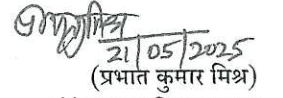 21/05/2025
(प्रभात कुमार मिश्र)